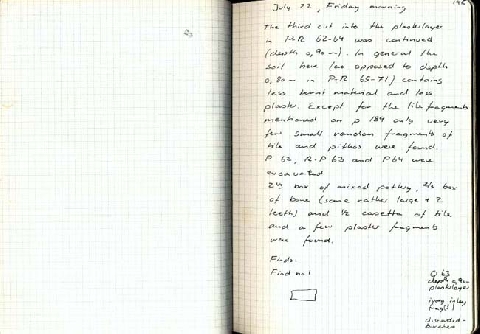 July 22, Friday morning
The third cut into the plaster layer
in P-R 62-64 was continued
(depth 0,90 -). In general the
soil here (as opposed to depth
0,80 - in P-R 65-71) contains
less burnt material and less
plaster. Except for the tile fragments
mentioned on p 184 only very
few small random fragments of
tile and pithos were found.
P 62, R-P 63 and P64 were
excavated
box of mixed pottery, box
of bone (some rather large + 2
teeth) and ½ casetta of tile
and a few plaster fragments
were found.
Finds.
Find no 1
Q 63
depth 0,90
plaster layer
discarded -